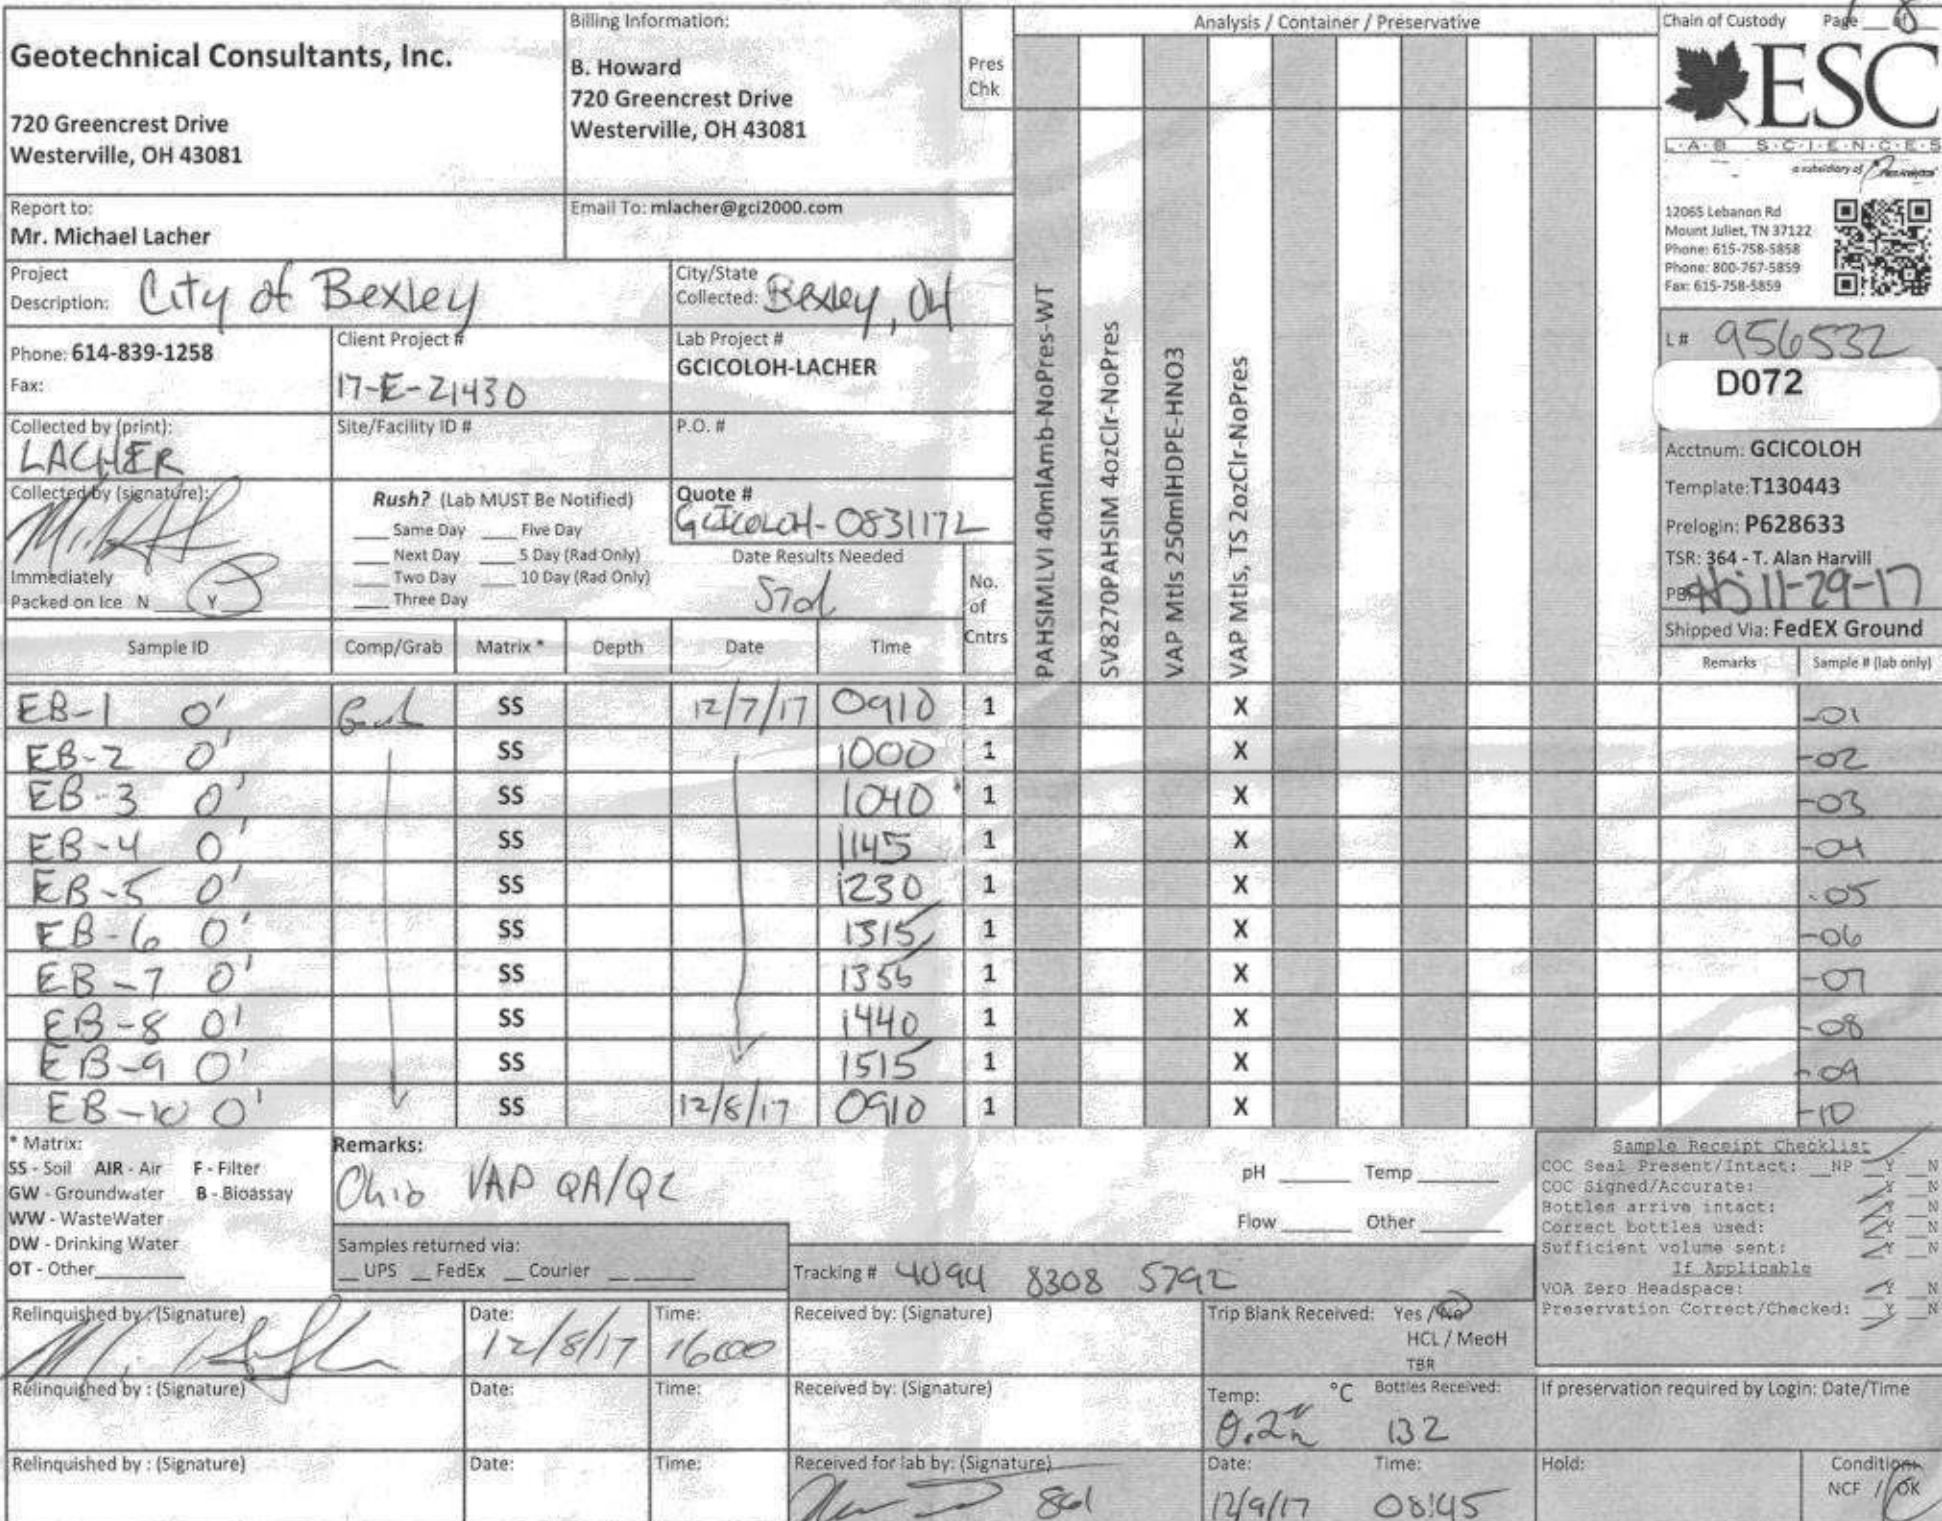 Geotechnical Consultants, Inc.
720 Greencrest Drive
Westerville, OH 43081
Billing Information:
B. Howard
720 Greencrest Drive
Westerville, OH 43081
Pres
Chk
Analysis / Container / Preservative
Chain of Custody Page of 8
ESC
L·A·B S·C·I·E·N·C·E·S
a subsidiary of
12065 Lebanon Rd
Mount Juliet, TN 37122
Phone: 615-758-5858
Phone: 800-767-5859
Fax: 615-758-5859
Report to:
Mr. Michael Lacher
Email To: mlacher@gci2000.com
Project
Description: City of Bexley
City/State
Collected: Bexley, OH
Phone: 614-839-1258
Fax:
Client Project #
17-E-21430
Lab Project #
GCICOLOH-LACHER
L# 956532
D072
Collected by (print):
LACHER
Site/Facility ID #
P.O. #
Acctnum: GCICOLOH
Template: T130443
Prelogin: P628633
TSR: 364 - T. Alan Harvill
11-29-17
Shipped Via: FedEX Ground
Collected by (signature):
Immediately
Packed on Ice N Y
Rush? (Lab MUST Be Notified)
Same Day Five Day
Next Day 5 Day (Rad Only)
Two Day 10 Day (Rad Only)
Three Day
Quote #
GCICOLOH-083117L
Date Results Needed
Std
No.
of
Cntrs
PAHSIMLVI 40mlAmb-NoPres-WT
SV8270PAHSIM 4ozClr-NoPres
VAP Mtls 250mlHDPE-HNO3
VAP Mtls, TS 2ozClr-NoPres
Sample ID Comp/Grab Matrix * Depth Date Time Remarks Sample # (lab only)
EB-1 0' Grab SS 12/7/17 0910 1 X -01
EB-2 0' SS 1000 1 X -02
EB-3 0' SS 1040 1 X -03
EB-4 0' SS 1145 1 X -04
EB-5 0' SS 1230 1 X -05
EB-6 0' SS 1315 1 X -06
EB-7 0' SS 1 X -07
EB-8 0' SS 1440 1 X -08
EB-9 0' SS 1515 1 X -09
EB-10 0' SS 12/8/17 0910 1 X -10
* Matrix:
SS - Soil AIR - Air F - Filter
GW - Groundwater B - Bioassay
WW - WasteWater
DW - Drinking Water
OT - Other
Remarks:
Ohio VAP QA/QC
Samples returned via:
UPS FedEx Courier
pH Temp
Flow Other
Tracking # 4094 8308 5792
Sample Receipt Checklist
COC Seal Present/Intact: NP Y N
COC Signed/Accurate: Y N
Bottles arrive intact: Y N
Correct bottles used: Y N
Sufficient volume sent: Y N
If Applicable
VOA Zero Headspace: Y N
Preservation Correct/Checked: Y N
Relinquished by : (Signature)
Date:
12/8/17
Time:
Received by: (Signature)
Trip Blank Received: Yes / No
HCL / MeoH
TBR
Relinquished by : (Signature)
Date:
Time:
Received by: (Signature)
Temp: °C
Bottles Received:
132
If preservation required by Login: Date/Time
Relinquished by : (Signature)
Date:
Time:
Received for lab by: (Signature)
Date:
12/9/17
Time:
08:45
Hold:
Condition:
NCF / OK